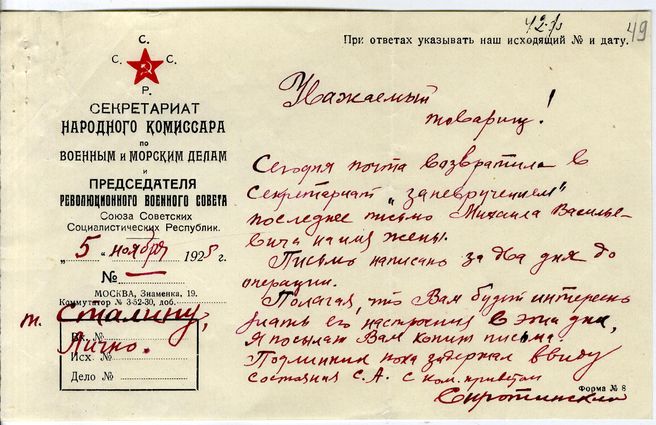 42-л
49
С.
С. С.
Р.
СЕКРЕТАРИАТ
НАРОДНОГО КОМИССАРА
по
ВОЕННЫМ и МОРСКИМ ДЕЛАМ
и
ПРЕДСЕДАТЕЛЯ
РЕВОЛЮЦИОННОГО ВОЕННОГО СОВЕТА
Союза Советских
Социалистических Республик.
„5" ноября 1925 г.
№
МОСКВА, Знаменка, 19.
Коммутатор № 3-52-30, доб.
т. Сталину,
Лично.
Вх. №
Исх. №
Дело №
При ответах указывать наш исходящий № и дату.
Уважаемый
товарищ!
Сегодня почта возвратила в
секретариат „заневручением"
последнее письмо Михаила Василье-
вича на имя жены.
Письмо написано за два дня до
операции.
Полагая, что Вам будет интересно
знать его настроения в эти дни,
я посылаю Вам копию письма.
Подлинник пока задержал ввиду
состояния С.А. С ком. приветом
Сиротинский
Форма № 8